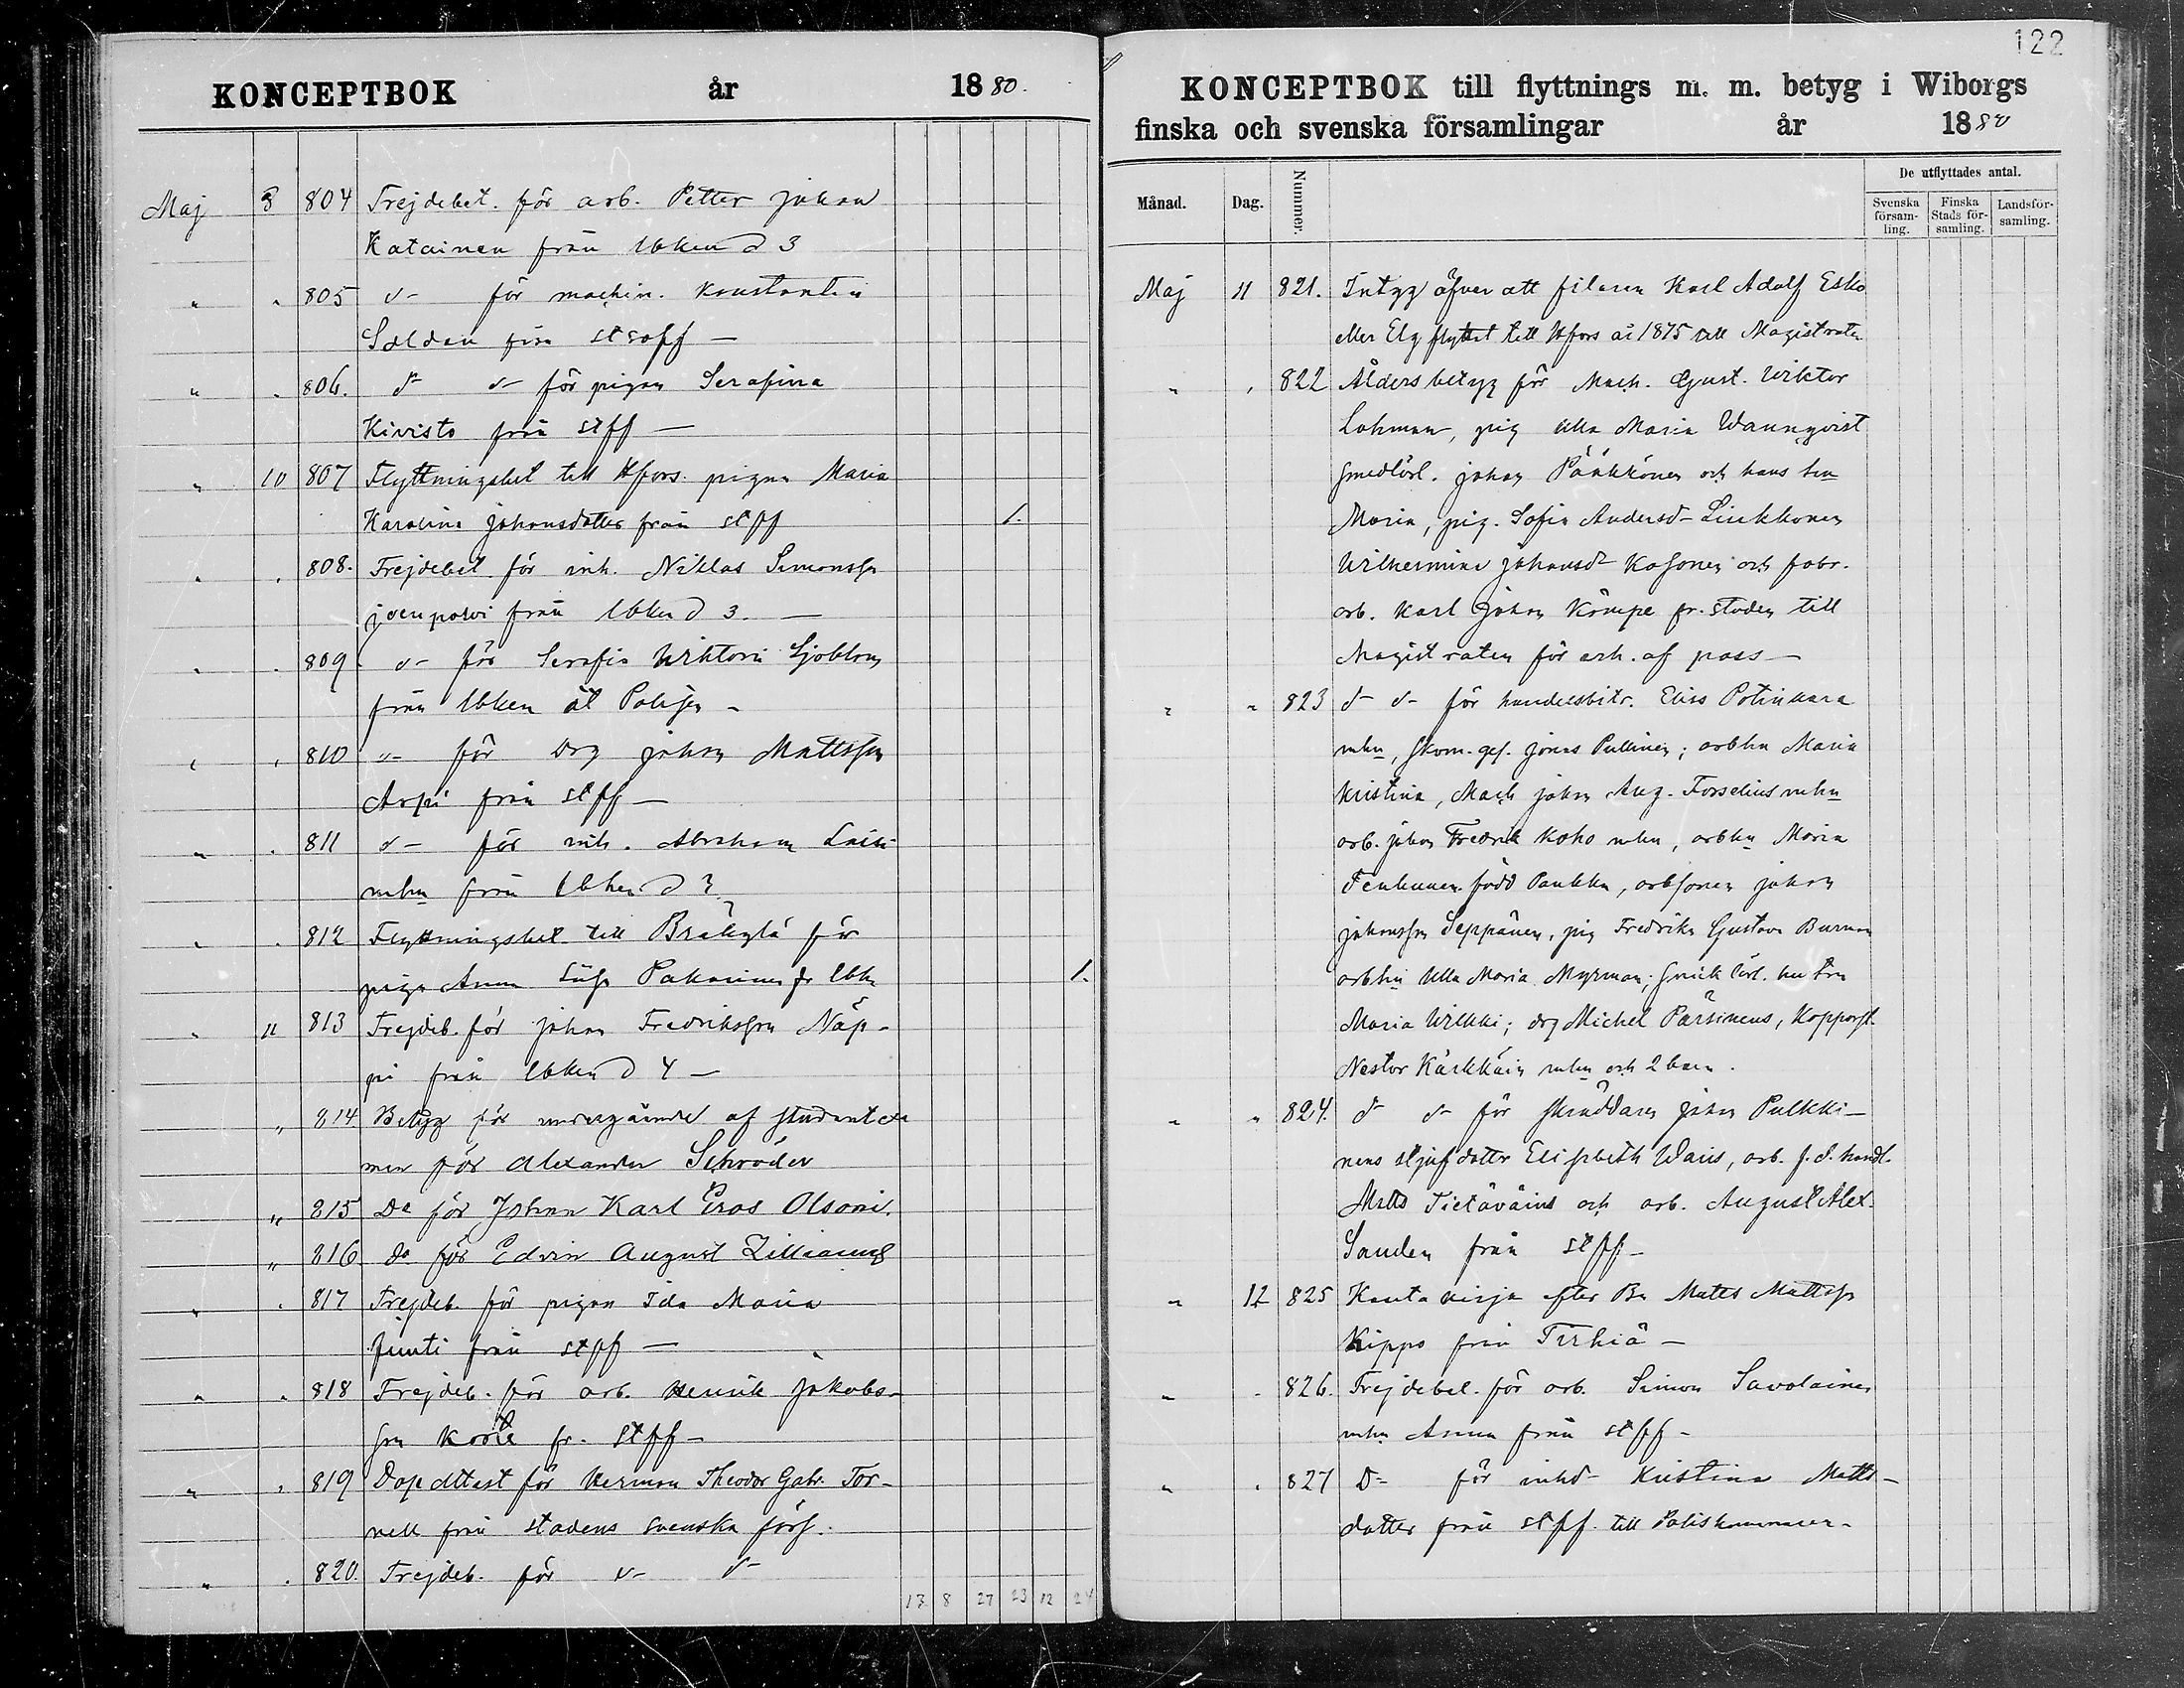 KONCEPTBOK år 1880.
Maj 8 804 Frejdebet. för arb. Petter Johan
Katainen från lbken d 3
" " 805 d- för machin. Konstantin
Soldan från
" " 806. d- d- för pigan Serafina
Kivisto från stff —
" 10 807 Flyttningsbet till Hfors. pigan Maria
Karolina Johansdotter från stff 1.
" " 808. Frejdebet för inh. Niklas Simonsson
från lbken d 3. —
" " 809 d- för Serafia Wiktoria Sjöblom
från lbken åt Polisen -
" " 810 "- för drg Johan Mattsson
från stff —
" " 811 d- för inh. Abraham
mhu från lbken d 3
" " 812 Flyttningsbet till Brakylä för
pigan Anna Pakarinen fr lbkn 1.
" 11 813 Frejdeb. för Johan Fredriksson Näp-
pi från lbken d 4 —
" 814 Betyg för undergående af studentexa
men för Alexander Schröder
" 815 Do för Johan Karl Eros Olsoni.
" 816 do för Edvin August Zilliacus
" " 817 Frejdeb. för pigan Ida Maria
Junti från stff —
" " 818 Frejdeb. för arb. Henrik Jakobs-
son fr. stff —
" " 819 Dop attest för Herman Theodor Gabr. Tor-
nell från stadens svenska förs.
" " 820. Frejdeb. för d- d-
13 8 27 23 12 24
122
KONCEPTBOK till flyttnings m. m. betyg i Wiborgs
finska och svenska församlingar år 1880
Månad. Dag. Nummer. De utflyttades antal.
Svenska församling. Finska Stads församling. Landsförsamling.
Maj 11 821. Intyg öfver att filaren Karl Adolf Esko
eller Elg flyttat till Hfors år 1875 till Magistraten
" " 822 Åldersbetyg för Mach. Gust. Wiktor
Lohman, pig Ulla Maria Wannqvist
smedlärl. Johan Pääkkönen och hans hu
Maria, pig. Sofia Andersd- Linkkonen
Wilhelmina Johansd- Kosonen och fabr.
arb. Karl Johan Kämpe fr. staden till
Magistraten för erh. af pass —
" " 823 d- d- för handelsbitr. Elias Potinkara
mhu, skom. ges. Jonas Pullinen; arbhu Maria
Kristina, Mach Johan Aug. Forselius mhu
arb. Johan Fredrik Koho mhu, arbhu Maria
Tenhunen född Paukku, arbsonen Johan
Johansson Seppänen, pig Fredrika Gustava Burman
arbhu Ulla Maria Myrman;
Maria Wilkki; drg Michel Pärsinens, Kopparsl.
Nestor Kärkkäin mhu och 2 barn.
" " 824. d- d- för skräddaren Johan Pulkki-
nens stjufdotter Elisabeth Waris, arb. f. d. handl.
Matts Tietäväins och arb. August Alex.
Sanden från stff —
" 12 825 Kauta virja efter Bn Matts Mattss
Kippo från Tirhiä —
" " 826. Frejdebet. för arb. Simon Savolainen
mhu Anna från stff -
" " 827 D= för inhd- Kristina Matts-
dotter från stff till Poliskammaren -